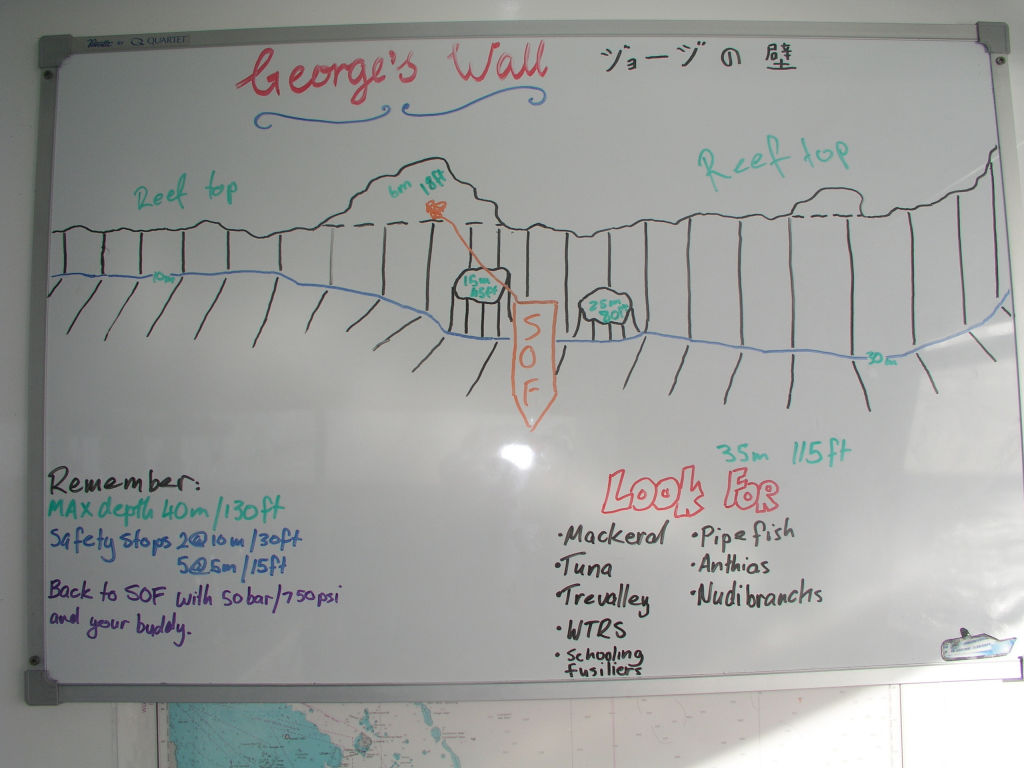 QUARTET
George's Wall ジョージの壁
Reef top
Reef top
6m 18ft
10m
15m
45ft
25m
80ft
SOF
30m
35m 115ft
Remember:
MAX depth 40m/130ft
Safety Stops 2@10m/30ft
5@5m/15ft
Back to SOF with 50bar/750psi
and your buddy.
LOOK FOR
·Mackeral
·Tuna
·Trevalley
·WTRS
·Schooling
fusiliers
·Pipefish
·Anthias
·Nudibranchs